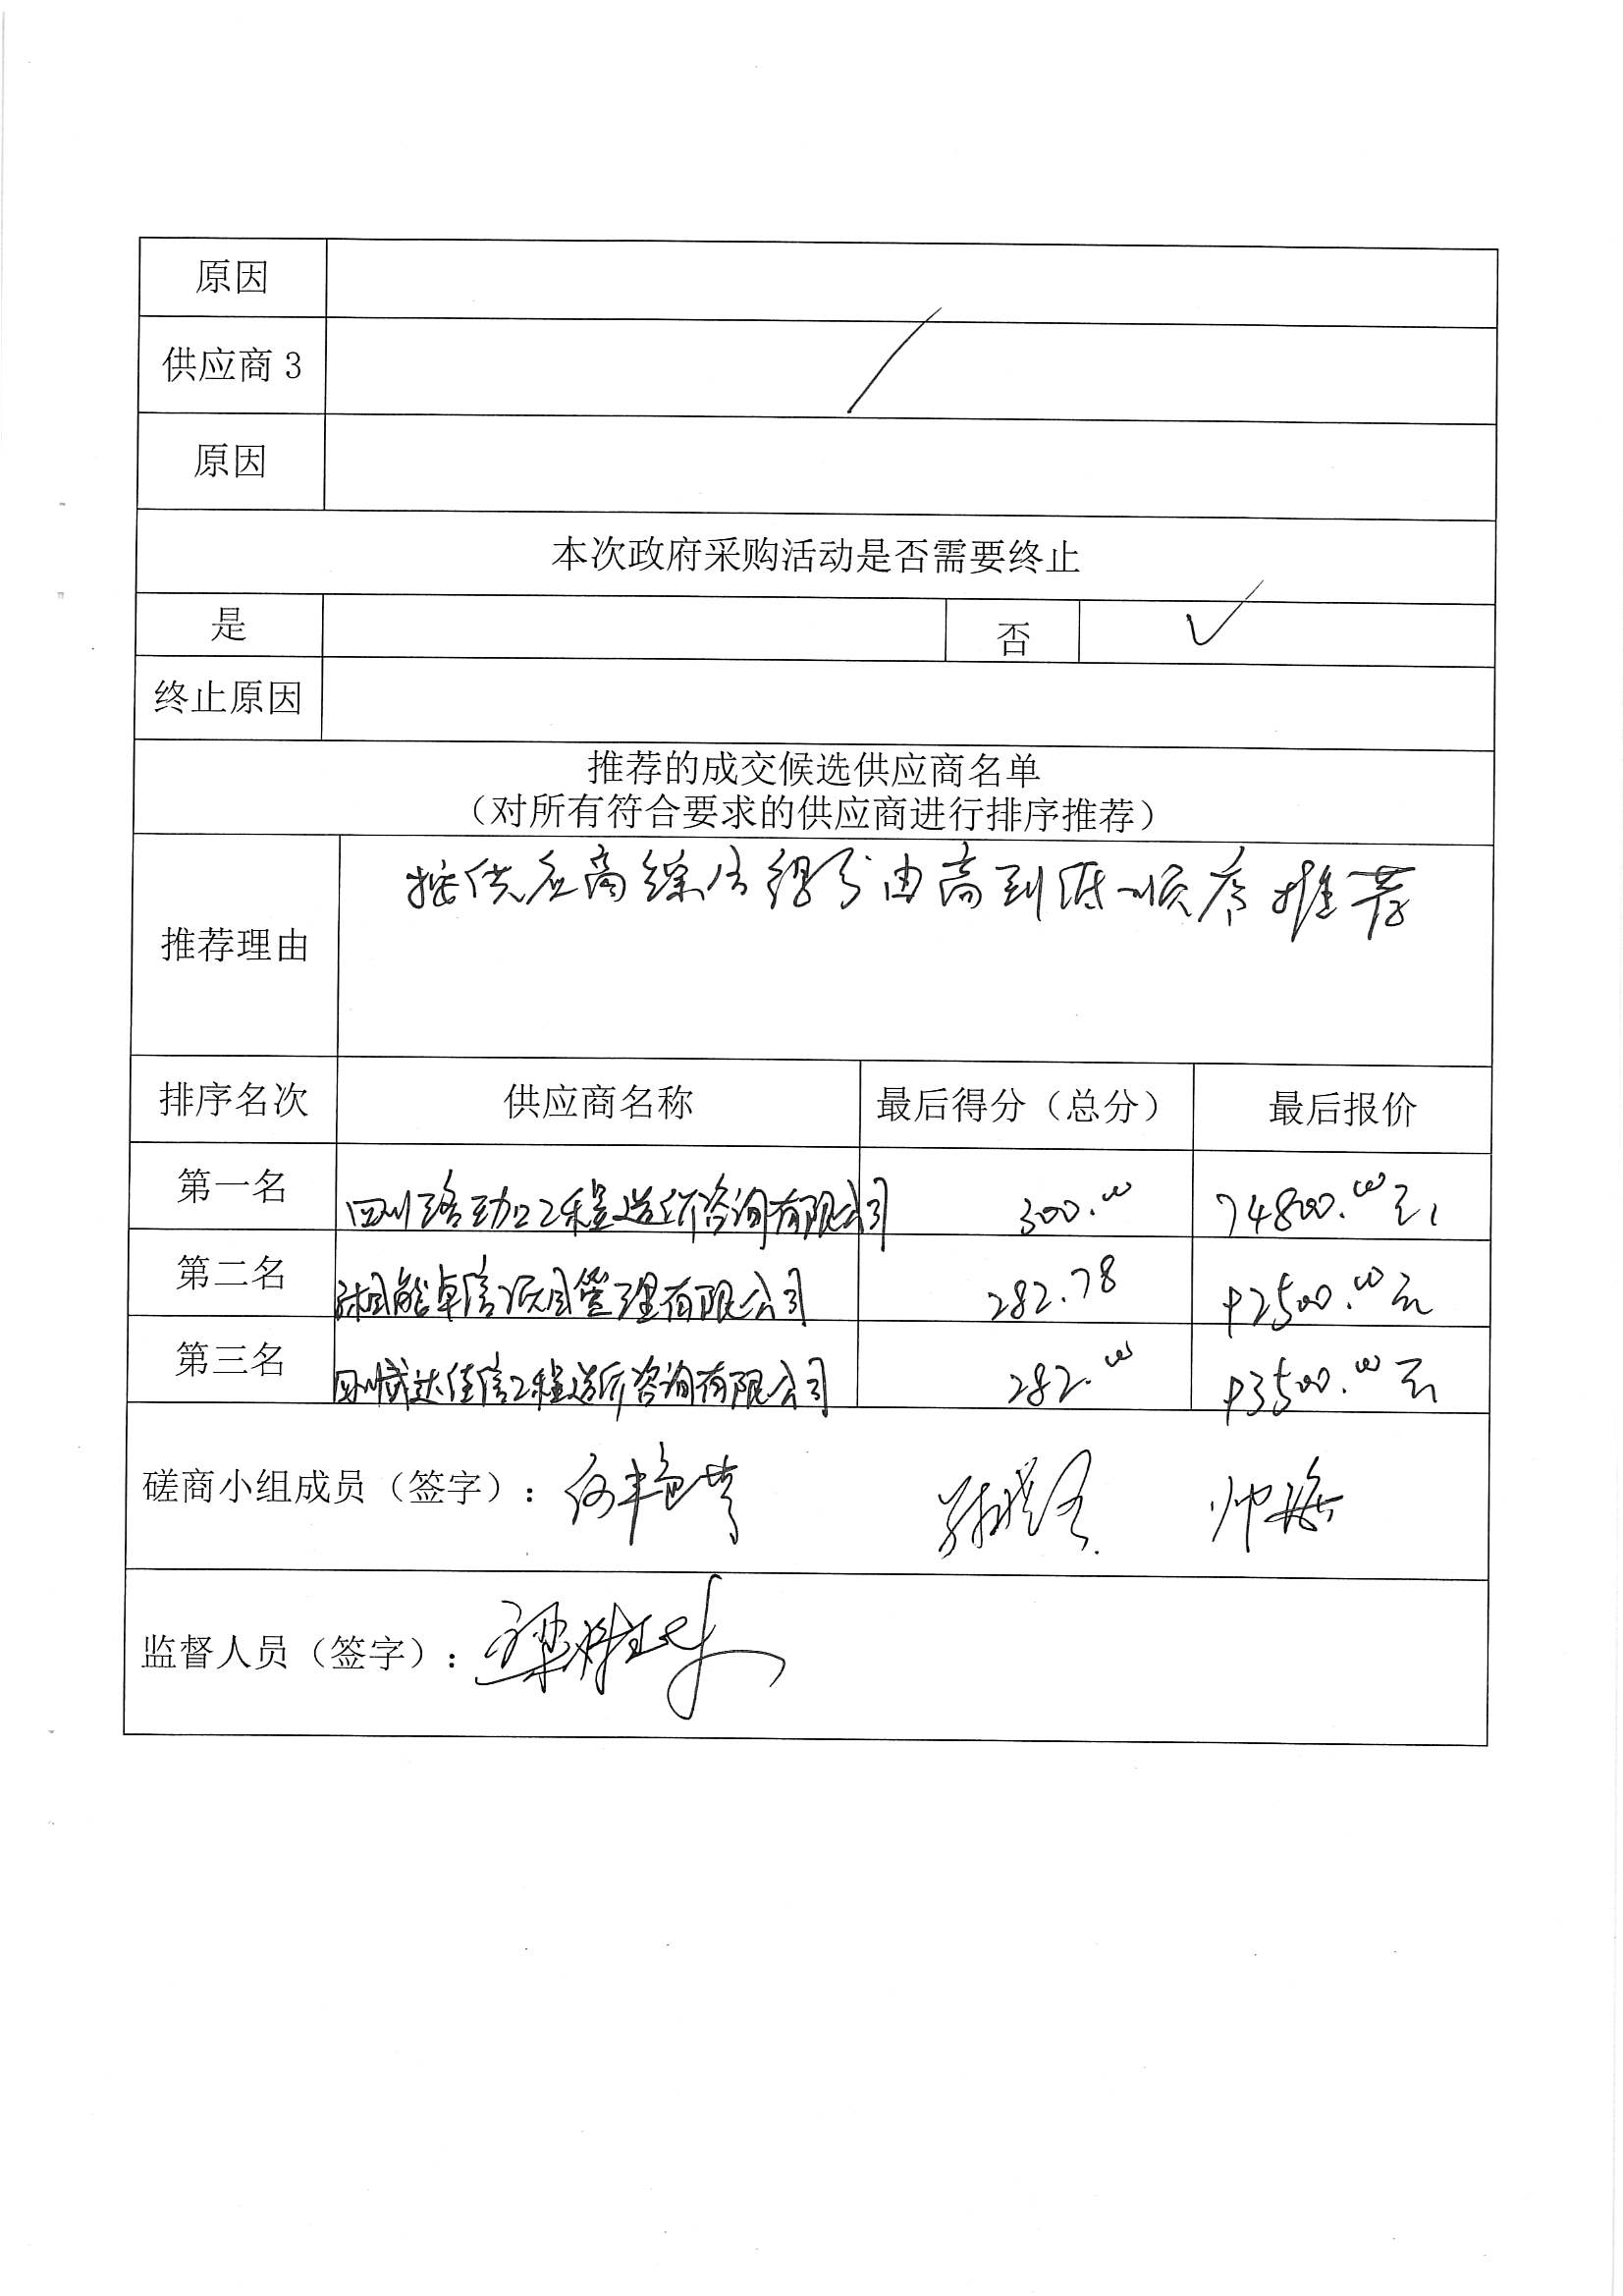 原因
供应商 3
原因
本次政府采购活动是否需要终止
是 否 ✓
终止原因
推荐的成交候选供应商名单
（对所有符合要求的供应商进行排序推荐）
推荐理由 按供应商综合得分由高到低顺序推荐
排序名次 供应商名称 最后得分（总分） 最后报价
第一名 四川 工程造价咨询有限公司 300.00 74800.00元
第二名 卓信 管理有限公司 282.78 92500.00元
第三名 四川 达佳信工程造价咨询有限公司 282.00 93500.00元
磋商小组成员（签字）：
监督人员（签字）：